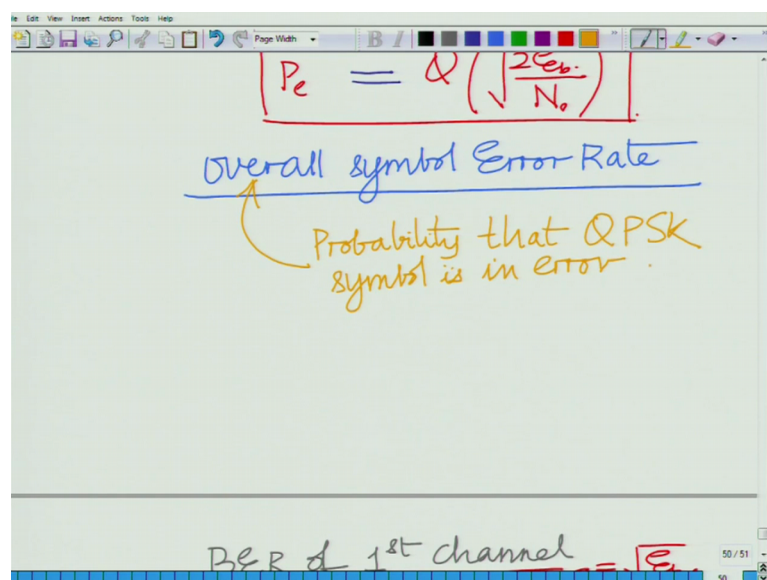 File Edit View Insert Actions Tools Help
Page Width
B I
Pe = Q(√(2Eb/No))
Overall symbol Error Rate
Probability that QPSK
symbol is in error.
BER of 1st channel
50 / 51
50